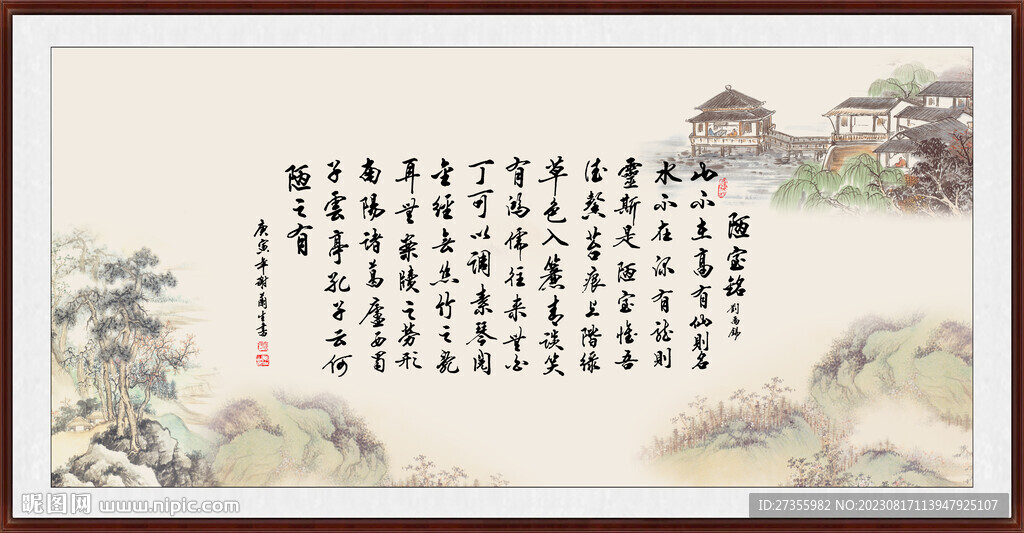 陋室銘
劉禹錫
山不在高有仙則名
水不在深有龍則
靈斯是陋室惟吾
德馨苔痕上階綠
草色入簾青談笑
有鴻儒往来無白
丁可以調素琴閱
金經无丝竹之亂
耳無案牘之勞形
南陽諸葛廬西蜀
子雲亭孔子云何
陋之有
庚寅年 生書
昵图网 www.nipic.com
ID:27355982 NO:20230817113947925107